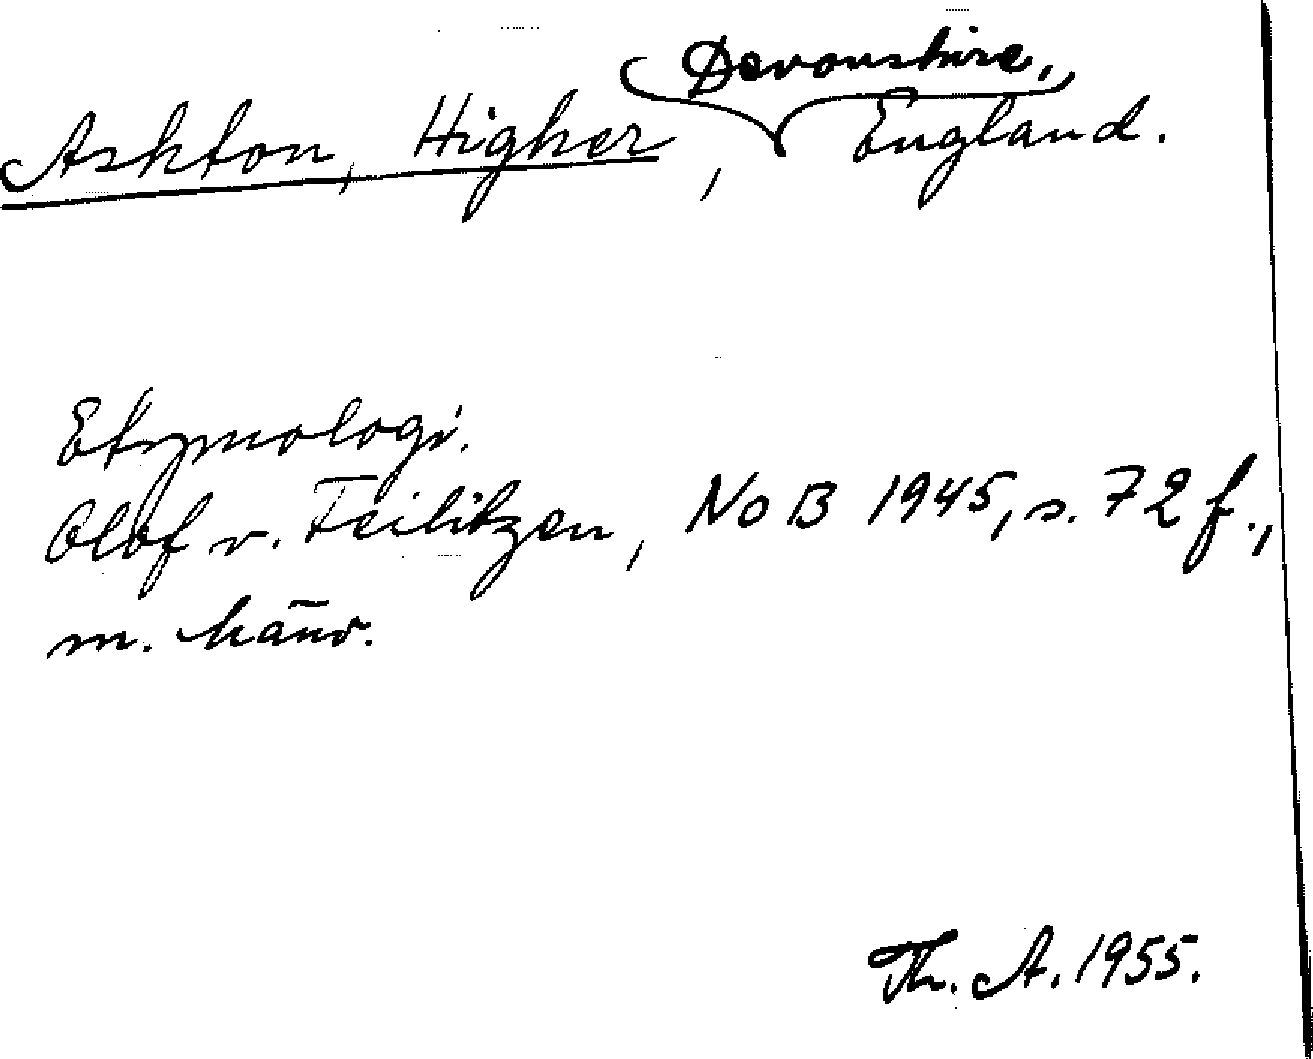 Devonshire,
Ashton, Higher, England.
Etymologi.
Olof v. Feilitzen, NoB 1945, s. 72 f.,
m. hänv.
Th. A. 1955.